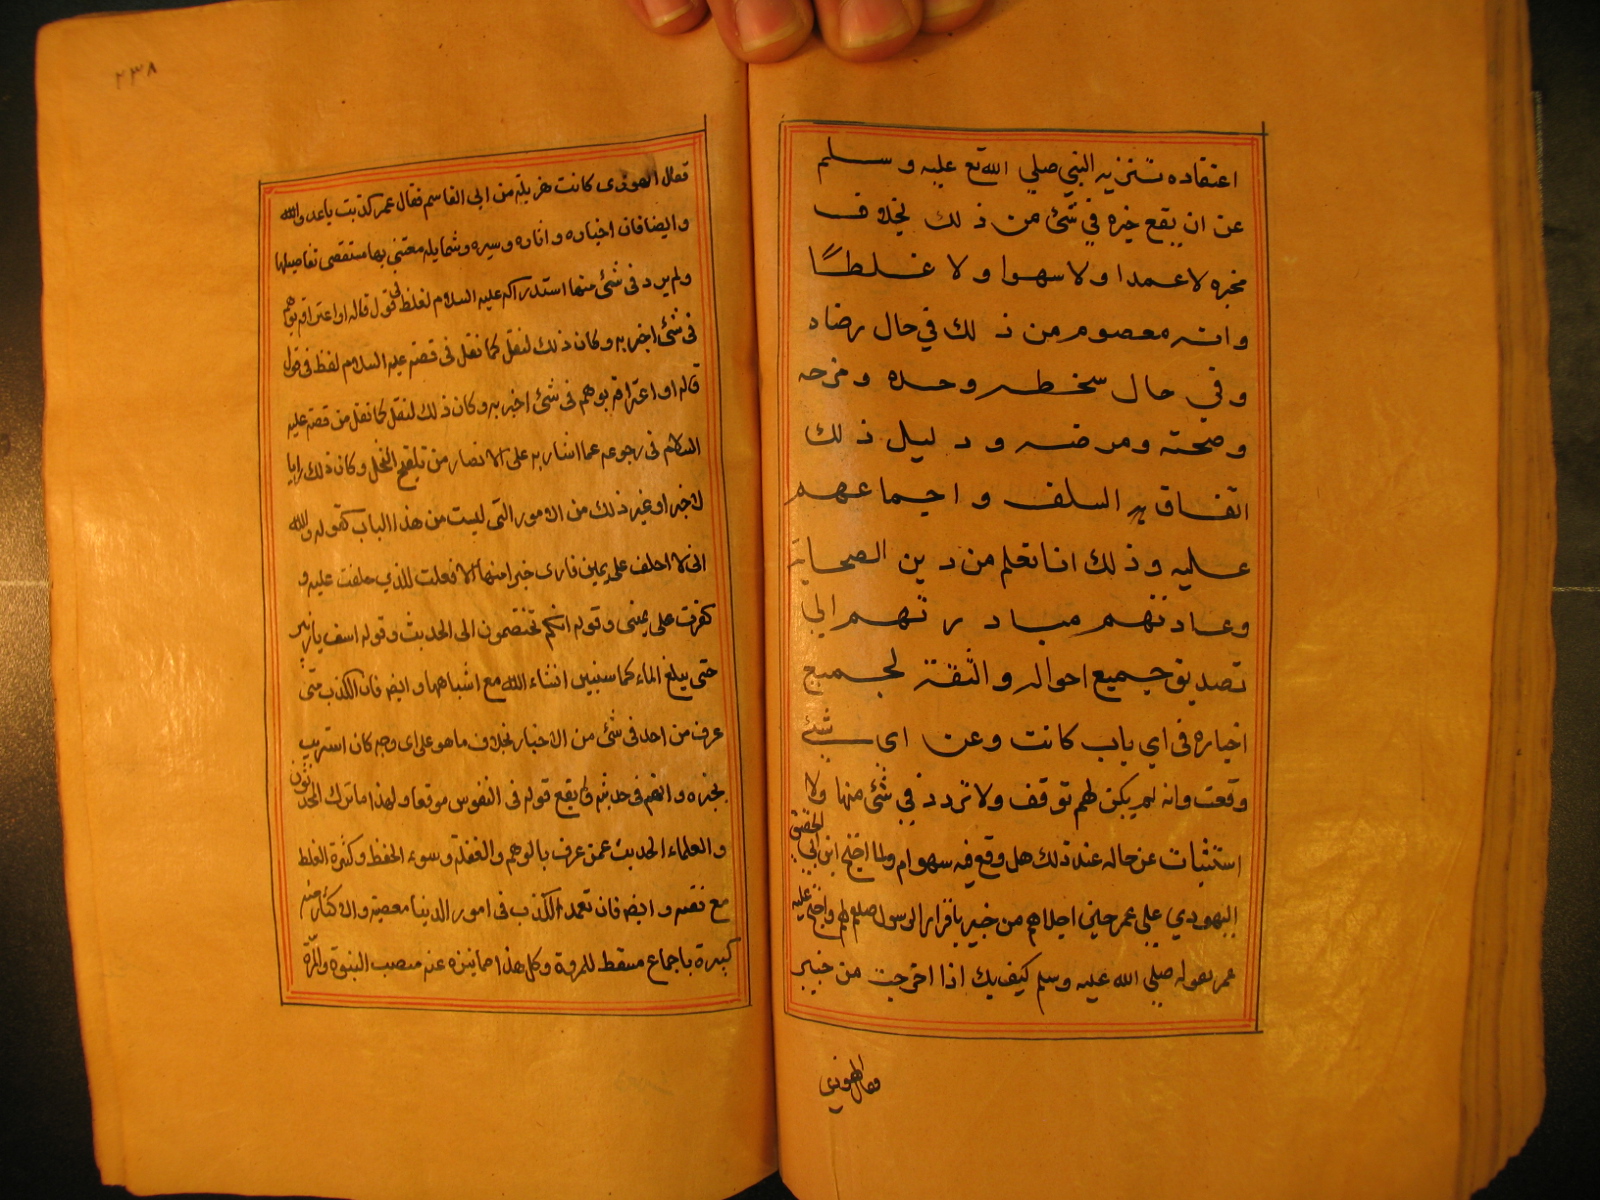 اعتقاده تنزيه النبي صلي الله تع عليه وسلم
عن ان يقع خبره في شئ من ذلك بخلاف
مخبره لا عمدا ولا سهوا ولا غلطًا
وانه معصوم من ذلك في حال رضاه
وفي حال سخطه وجده ومزحه
وصحته ومرضه ودليل ذلك
اتفاق السلف واجماعهم
عليه وذلك انا نعلم من دين الصحابة
وعادتهم مبادرتهم الي
تصديق جميع احواله والثقة لجميع
اخباره في اي باب كانت وعن اي شئ
وقعت وانه لم يكن لهم توقف ولا تردد في شئ منها ولا
استثبات عن حاله عند ذلك هل وقع فيه سهو ام ولما احتج ابن ابي الحقيق
اليهودي علي عمر حين اجلاهم من خيبر باقرار الرسول صلعم لهم واحتج عليه
عمر بقوله صلي الله عليه وسلم كيف بك اذا اخرجت من خيبر
فقال اليهودي
٢٣٨
فقال اليهودى كانت هزيلة من ابى القاسم فقال عمر كذبت ياعدو الله
وايضا فان اخباره واثاره وسيره وشمايله معتنى بها مستقصى تفاصيلها
ولم يرد فى شئ منها استدراكه عليه السلام لغلط فى قول قاله او اعترافه بوهم
فى شئ اخبر به وكان ذلك لنقل كما نقل فى قصته عليه السلام لفظ فى قول
قاله او اعترافه بوهم فى شئ اخبر به وكان ذلك لنقل كما نقل من قصته عليه
السلام فى رجوعه عما اشار به على الانصار من تلقيح النخل وكان ذلك رايا
لا خبرا وغير ذلك من الامور التى ليست من هذا الباب كقوله والله
انى لا احلف على يمين فارى خيرا منها الا فعلت للذي حلفت عليه و
كفرت على يمينى وقوله انكم تختصمون الى الحديث وقوله اسق يا زبير
حتى يبلغ الماء كما سنبين انشاء الله مع اشباهها وايض فان الكذب متى
عرف من احد فى شئ من الاخبار بخلاف ما هو على اى وجه كان استريب
بخبره واتهم فى حديثه ولم يقع قوله فى النفوس موقعا ولهذا ما ترك المحدثون
والعلماء الحديث عمن عرف بالوهم والغفلة وسوء الحفظ وكثرة الغلط
مع ثقته وايضه فان تعمد الكذب فى امور الدنيا معصية والاكثار منه
كبيرة باجماع مسقط للمروة وكل هذا مما ينزه عنه منصب النبوة والمرة